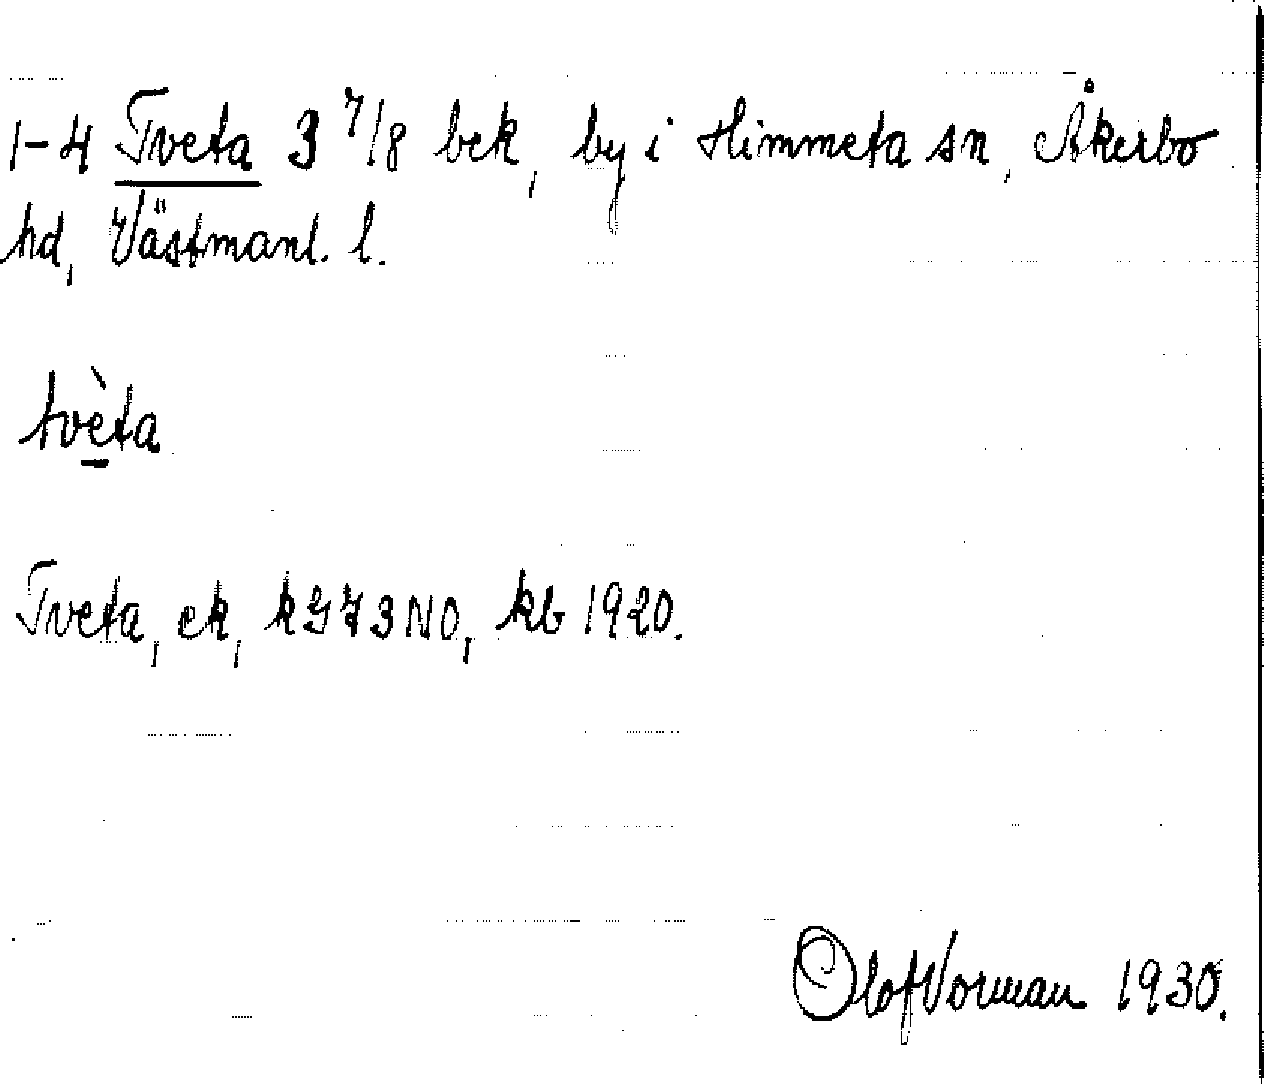 1-4 Tveta 3 7/8 bek, by i Himmeta sn, Åkerbo
hd, Västmanl. l.
tvèta
Tveta, ek, kG73NO, kb 1920.
Olof Vorman 1930.